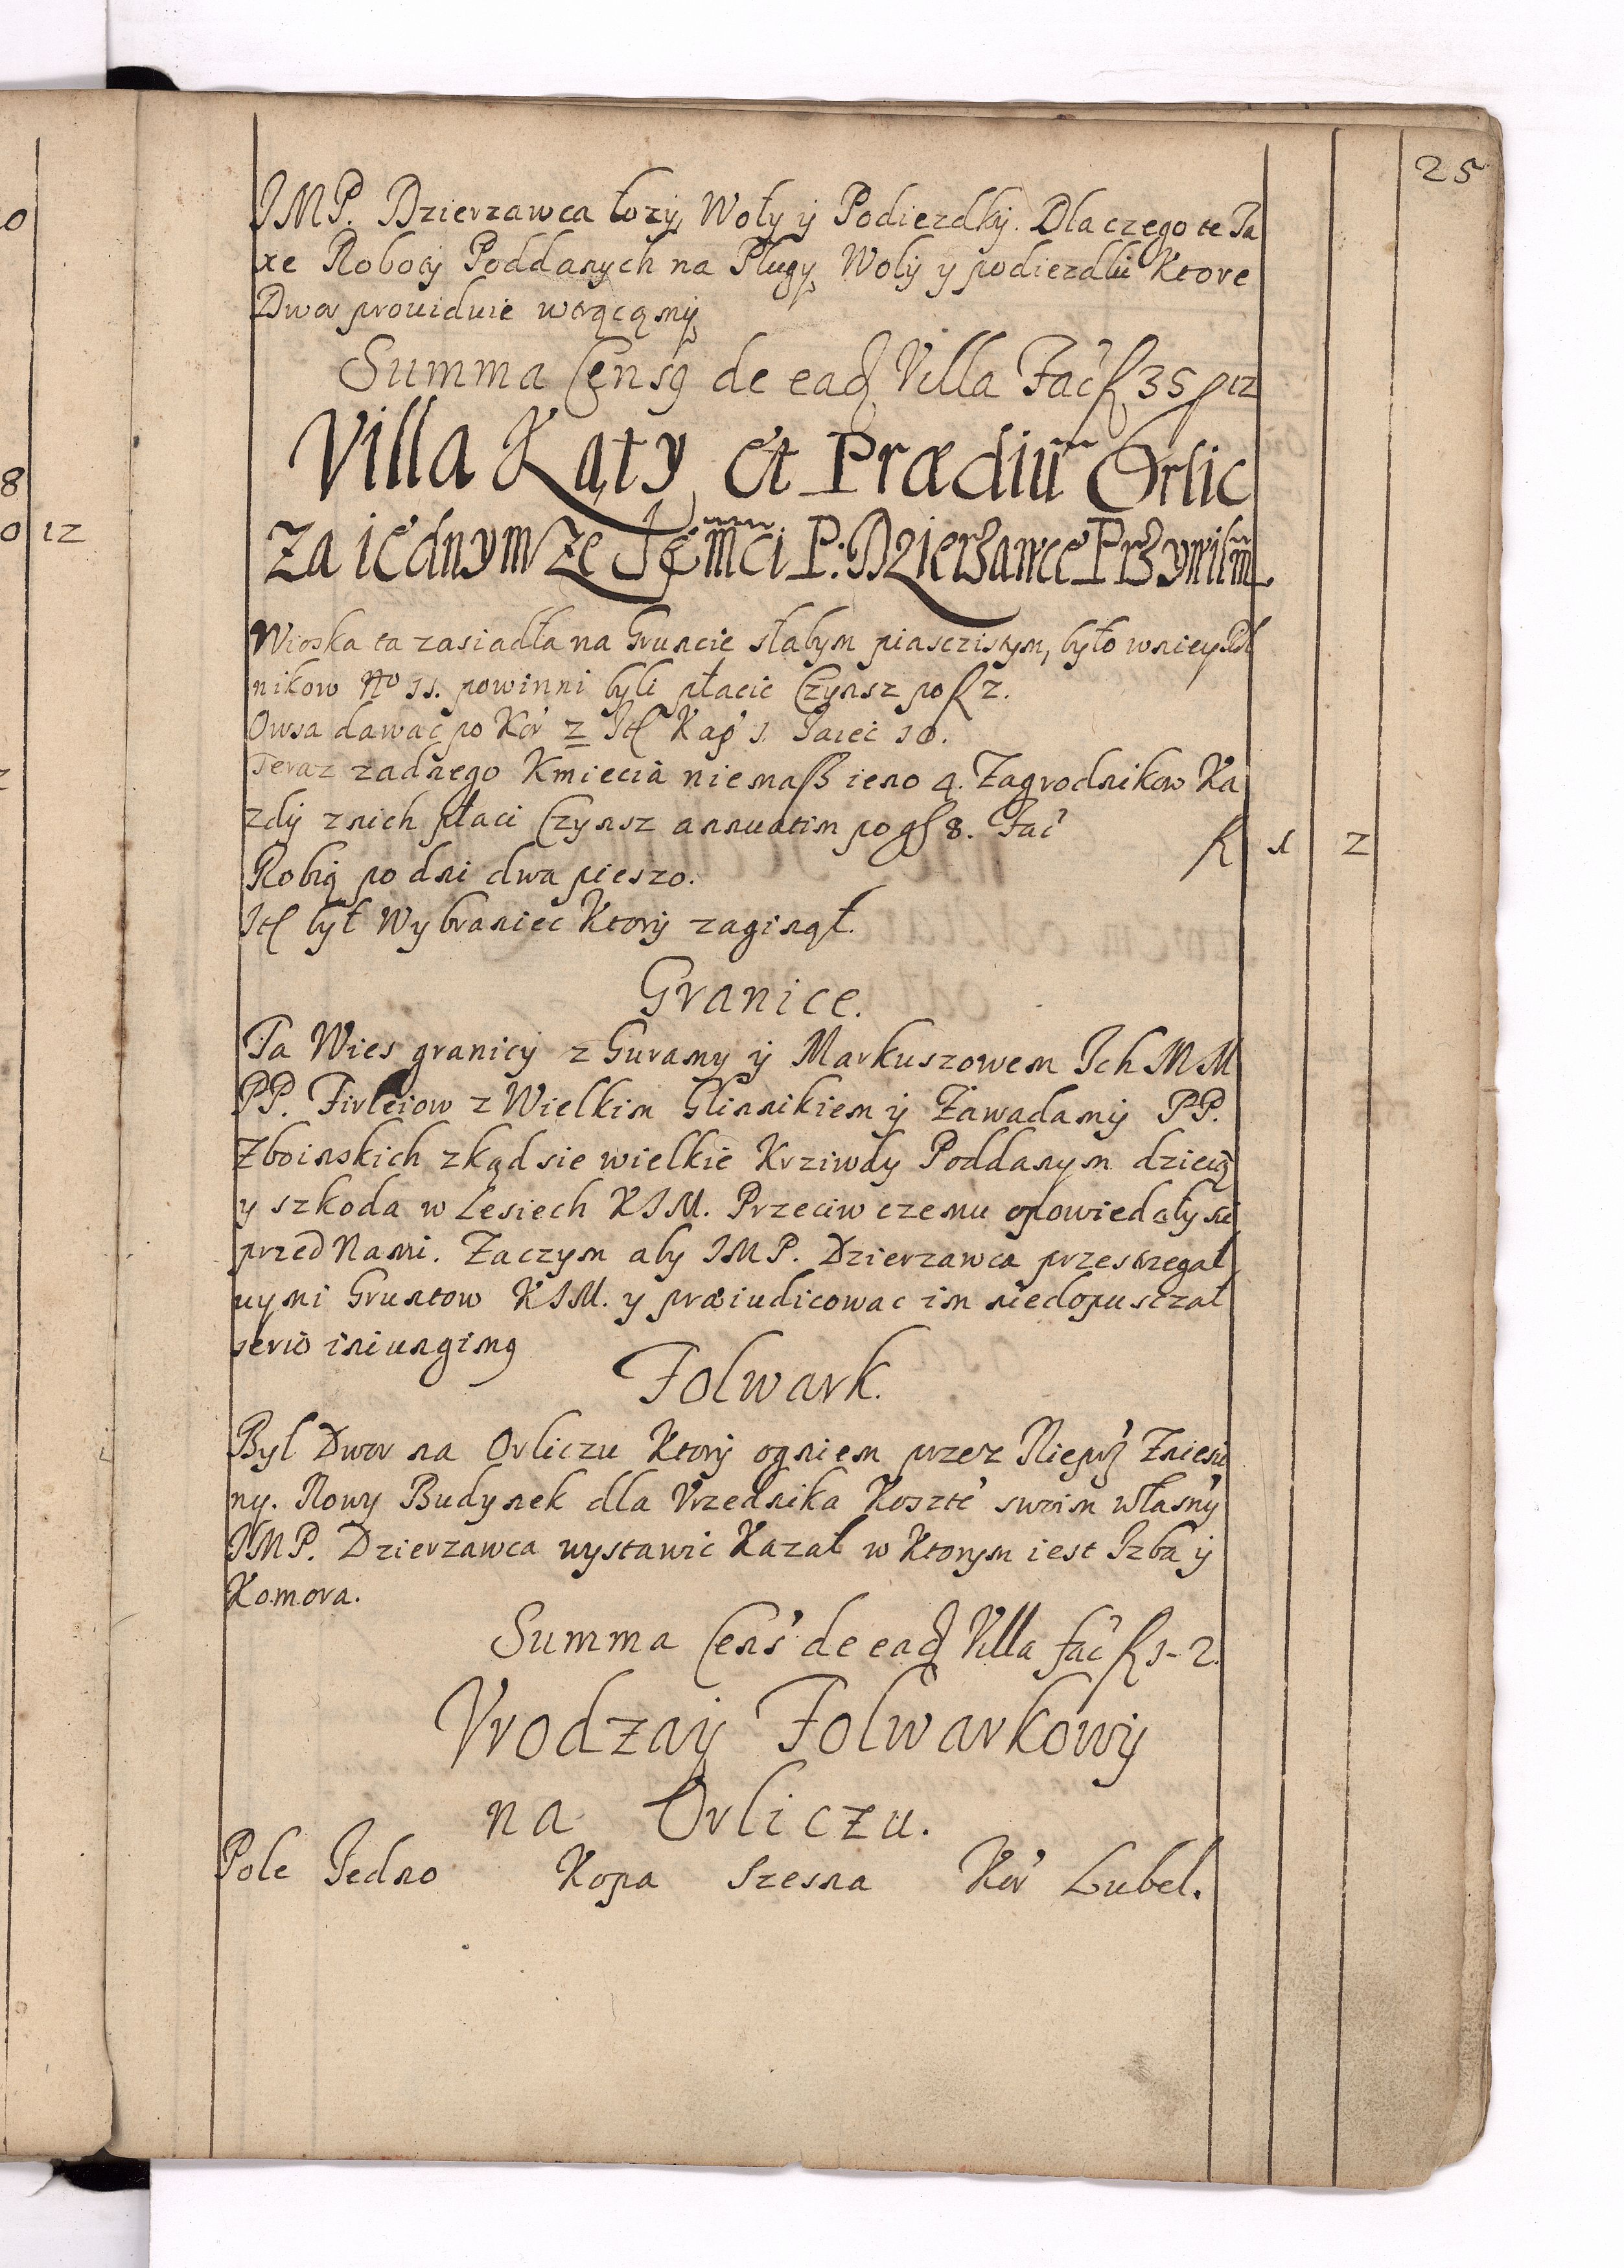 25
JMP. Dzierzawca łozy, Woły ÿ Podiezdkÿ. Dla czego te Ta
xe Robotÿ Poddanych na Pługÿ, Wolÿ y podiezdki Ktore
Dwor prouiduie wtrącąmÿ
Summa Censꝰ de eadꝫ Villa Fać f 35 p 12
Villa Kąty, et Prædiũ Orlic
za iednym ze Jẽmći P: Dzierzawce Przywilm̃
Wioska ta zasiadła na Gruncie słabym piasczistym, było wniey Rol
nikow No 11. powinni byli płacic Czynsz po f 2.
Owsa dawac po Kor 2 Itꝫ Kap 1. Jaiec 10.
Teraz zadnego Kmiecia niemasz ieno 4. Zagrodnikow Ka
zdÿ znich płaci Czynsz annuatim po gs 8. Fać f 1 2
Robią po dni dwa pieszo.
Itꝫ był Wybraniec Ktorÿ zaginął.
Granice.
Ta Wies granicÿ z Guramy ÿ Markuszowem Ich MM
PP. Firleiow z Wielkim Glinnikiem ÿ Zawadamÿ PP.
Zboinskich zkąd sie wielkie Krziwdy Poddanym dzieią
y szkoda w Lesiech KJM. Przeciw czemu opowiedały sie
przed Nami. Zaczym aby JMP. Dzierzawca przestrzegał
uymi Gruntow KJM. y præiudicowac im niedopusczał
serio iniungimꝰ
Folwark.
Byl Dwor na Orliczu Ktorÿ ogniem przez Nieprz Zniesio
ny. Nowy Budynek dla Vrzednika Koszte swoim własny
JMP. Dzierzawca wystawic Kazał w Ktorym iest Izba ÿ
Komora.
Summa Cens de eadꝫ Villa fać f 1 - 2.
Vrodzaÿ Folwarkowÿ
na Orliczu.
Pole Jedno Kopa Szesna Kor Lubel.
0
8
0 12